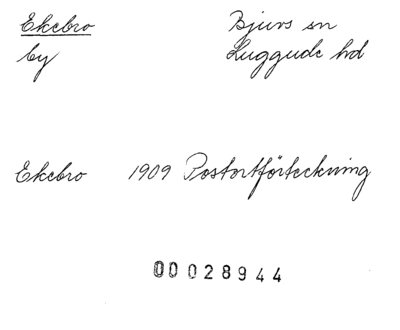 Ekebro Bjuvs sn
by Luggude hd
Ekebro 1909 Postortförteckning
00028944